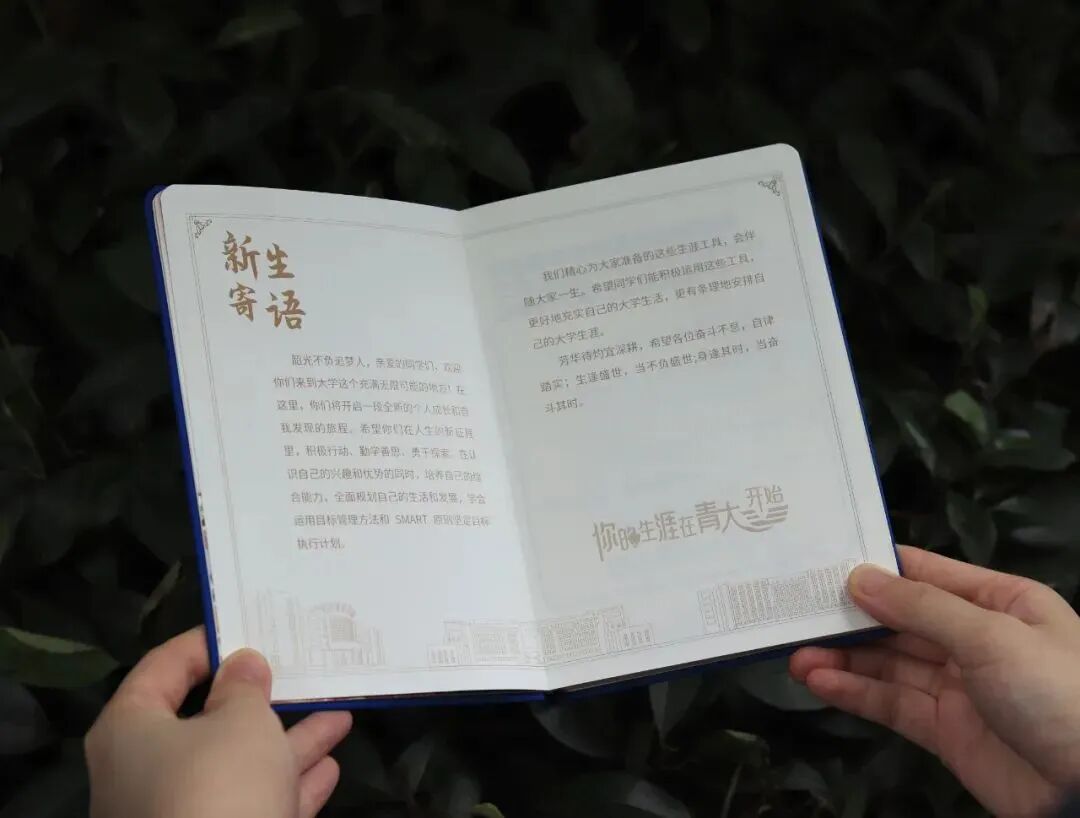 新生
寄语
韶光不负追梦人，亲爱的同学们，欢迎
你们来到大学这个充满无限可能的地方！在
这里，你们将开启一段全新的个人成长和自
我发现的旅程。希望你们在人生的新征程
里，积极行动、勤学善思、勇于探索。在认
识自己的兴趣和优势的同时，培养自己的综
合能力，全面规划自己的生活和发展，学会
运用目标管理方法和 SMART 原则坚定目标
执行计划。
我们精心为大家准备的这些生涯工具，会伴
随大家一生。希望同学们能积极运用这些工具，
更好地充实自己的大学生活，更有条理地安排自
己的大学生涯。
芳华待灼宜深耕，希望各位奋斗不息，自律
踏实；生逢盛世，当不负盛世;身逢其时，当奋
斗其时。
你的生涯在青大开始